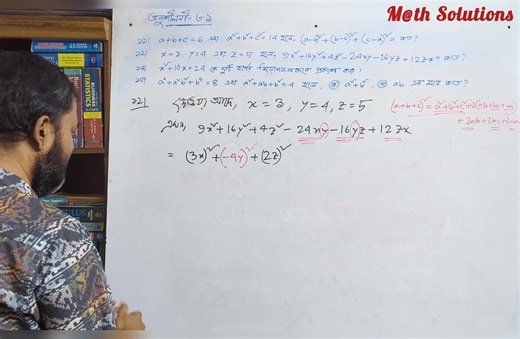 M@th Solutions
অনুশীলনী- ৩.১
২১। a+b+c = 6 এবং a²+b²+c² = 14 হলে, (a-b)²+(b-c)²+(c-a)² = কত?
২২। x = 3, y = 4 এবং z = 5 হলে, 9x²+16y²+4z²-24xy-16yz+12zx = কত?
x²+10x+24 কে দুটি বর্গের বিয়োগফলরূপে প্রকাশ কর।
a⁴+a²b²+b⁴ = 8 এবং a²+ab+b² = 4 হলে, a²+b², ab এর মান কত?
২২। দেওয়া আছে, x = 3, y = 4, z = 5
(a+b+c)² = a²+b²+c²
+2ab+2bc+2ca
এখন, 9x²+16y²+4z²-24xy-16yz+12zx
= (3x)²+(-4y)²+(2z)²
STATISTICS